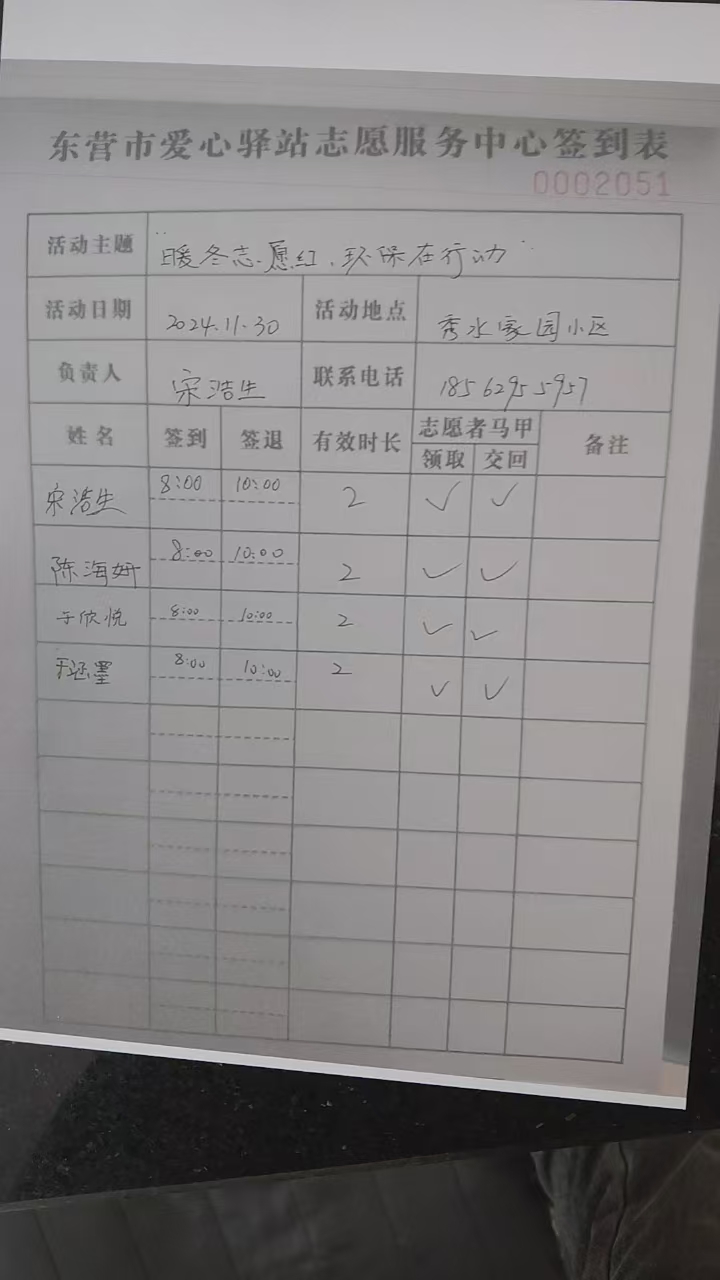 东营市爱心驿站志愿服务中心签到表
0002051
活动主题 "暖冬志愿红、环保在行动"
活动日期 2024.11.30 活动地点 秀水家园小区
负责人 宋浩生 联系电话 18562955957
姓名 签到 签退 有效时长 志愿者马甲 备注
领取 交回
宋浩生 8:00 10:00 2 ✓ ✓
陈海妍 8:00 10:00 2 ✓ ✓
于欣悦 8:00 10:00 2 ✓ ✓
于涵墨 8:00 10:00 2 ✓ ✓